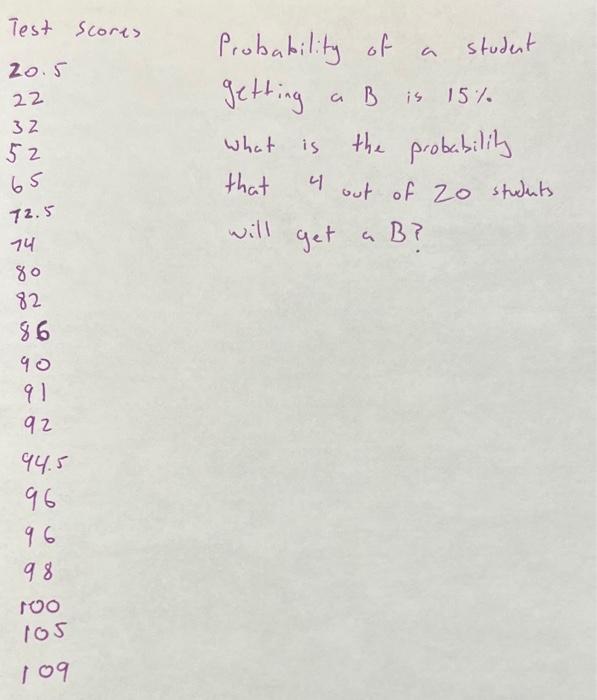 Test Scores
20.5
22
32
52
65
72.5
74
80
82
86
90
91
92
94.5
96
96
98
100
105
109
Probability of a student
getting a B is 15%.
what is the probability
that 4 out of 20 students
will get a B?